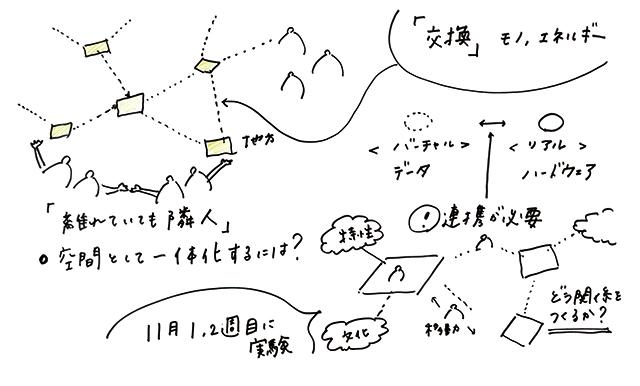 「交換」 モノ,エネルギー
地方
<バーチャル> ↔ <リアル>
データ ハードウェア
「離れていても隣人」
! 連携が必要
• 空間として一体化するには?
特性
文化
移動
どう関係を
つくるか?
11月1,2週目に
実験